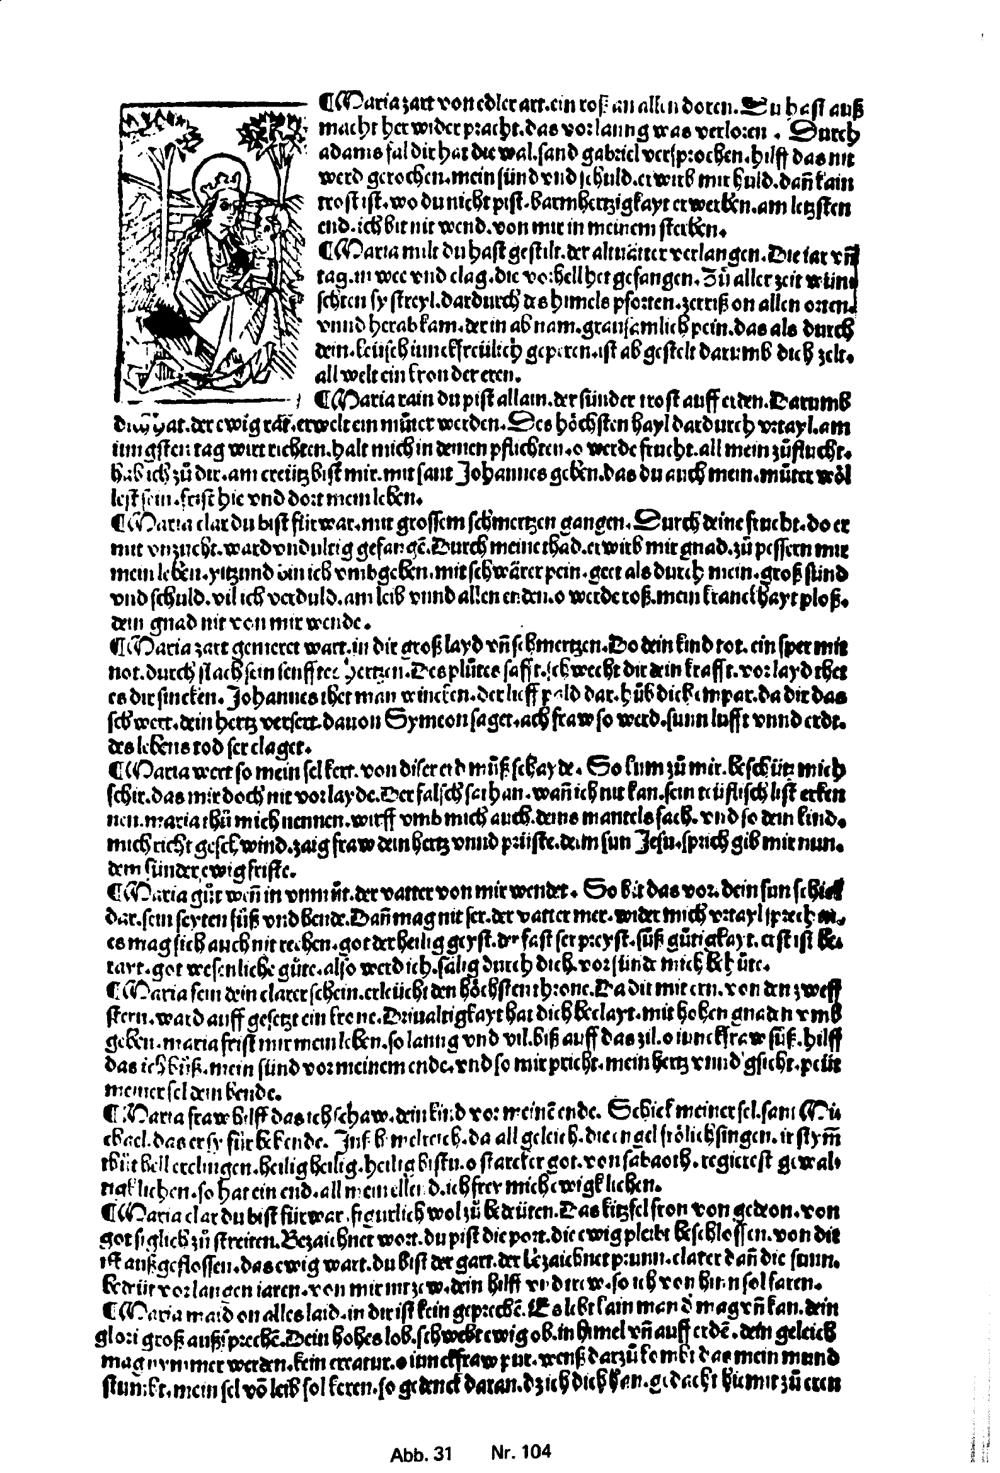 ¶Maria zart von edler art. ein roß an allen doren. Du hast auß
macht her wider pracht. das vorlanng was verloren. Durch
adams fal dir hat die wal. sand gabriel versprochen. hilff das nit
werd gerochen. mein sünd vnd schuld. erwirb mir huld. dañ kain
trost ist. wo du nicht pist. barmhertzigkayt erwerben. am letzsten
end. ich bit nit wend. von mir in meinem sterben.
¶Maria milt du hast gestilt. der altuätter verlangen. Die iar vñ
tag. in wee vnd clag. die vorhell het gefangen. Zů aller zeit wün
schten sy streyt. dardurch des himels pforten. zerriß on allen orten.
vnnd herab kam. der in ab nam. grausamlich pein. das als durch
dein. keüsch iunckfreülich geperen. ist ab gestelt darumb dich zelt.
all welt ein kron der eren.
¶Maria rain du pist allain. der sünder trost auff erden. Darumb
dich hat. der ewig rat. erwelt ein můter werden. Des höchsten hayl dardurch vrtayl. am
iungsten tag wirt richten. halt mich in deinen pflichten. o werde frucht. all mein zůflucht.
hab ich zů dir. am creütz bist mir. mit sant Johannes geben. das du auch mein. můter wöl
lest sein. frist hie vnd dort mein leben.
¶Maria clar du bist für war. mit grossem schmertzen gangen. Durch deine frucht. do er
mit vnzucht. ward vndultig gefangē. Durch meine thad. erwirb mir gnad. zů pessern mir
mein leben. yitzund bin ich vmbgeben. mit schwärer pein. geet als durch mein. groß sünd
vnd schuld. vil ich verduld. am leib vnnd allen enden. o werde roß. mein kranckhayt ploß.
dein gnad nit von mir wende.
¶Maria zart gemeret wart. in dir groß layd vñ schmertzen. Do dein kind tot. ein sper mit
not. durch stach sein senfftes hertzen. Des plůtes safft. schwecht dir dein krafft. vor layd thet
es dir sincken. Johannes thet man wincken. der lieff pald dar. hůb dich empar. da dir das
schwert. dein hertz versert. dauon Symeon saget. ach fraw so werd. sunn lufft vnnd erdt.
des lebens tod ser claget.
¶Maria wert so mein sel kert. von diser erd můß schayde. So kum zů mir. beschütz mich
schir. das mir doch nit vorlayde. Der falsch sathan. wañ ich nit kan. sein teüflisch list erken
nen. maria thů mich nennen. wirff vmb mich auch. deins mantels fach. vnd so dein kind.
mich richt geschwind. zaig fraw dein hertz vnnd prüste. deim sun Jesu. sprich gib mir nun.
dem sünder ewig friste.
¶Maria gůt weñ in vnmůt. der vatter von mir wendet. So bit das vor. dein sun schick
dar. sein seyten füß vnd hende. Dañ mag nit ser. der vatter mer. wider mich vrtayl sprechen.
es mag sich auch nit rechen. got der heilig geyst. der fast ser preyst. süß gütigkayt. erst ist be-
rayt. got wesenliche güte. also werd ich. sälig durch dich. vor sünde mich behüte.
¶Maria fein dein clarer schein. erleücht den höchsten throne. Da dir mit ern. von den zwelff
stern. ward auff gesetzt ein krone. Driualtigkayt hat dich beclayt. mit hohen gnaden vmb
geben. maria frist mir mein leben. so lanng vnd vil. biß auff das zil. o iunckfraw süß. hilff
das ich büß. mein sünd vor meinem ende. vnd so mir pricht. mein hertz vnnd gsicht. peüt
meiner sel dein hende.
¶Maria fraw hilff das ich schaw. dein kind vor meinē ende. Schick meiner sel. sant Mi
chael. das er sy für behende. Ins himelreich. da all geleich. die engel frölich singen. ir stym̄
thůt hell erclingen. heilig heilig. heilig bistu. o starcker got. von sabaoth. regierest gewal-
tigklichen. so hat ein end. all mein ellend. ich frey mich ewigklichen.
¶Maria clar du bist fürwar. figurlich wol zů bedüten. Das kitzfel fron von gedeon. von
got siglich zů streiten. Bezaichnet wort. du pist die port. die ewig pleibt beschlossen. von dir
ist außgeflossen. das ewig wart. du bist der gart. der bezaichnet prunn. clarer dañ die sunn.
bedüt vor langen iaren. von mir nit zew. dein hilff vnd trew. so ich von hinn sol faren.
¶Maria maid on alles laid. in dir ist kein geprechē. Es lebt kain man d mag vñ kan. dein
glori groß außsprechē. Dein hohes lob. schwebt ewig ob. in himel vñ auff erdē. dein geleich
mag nymmer werden. kein creatur. o iunckfraw pur. wenß darzů kombt das mein mund
stumbt. mein sel vō leib sol keren. so gedenck daran. dz ich dich han. gedacht hiemit zů eren
Abb. 31 Nr. 104